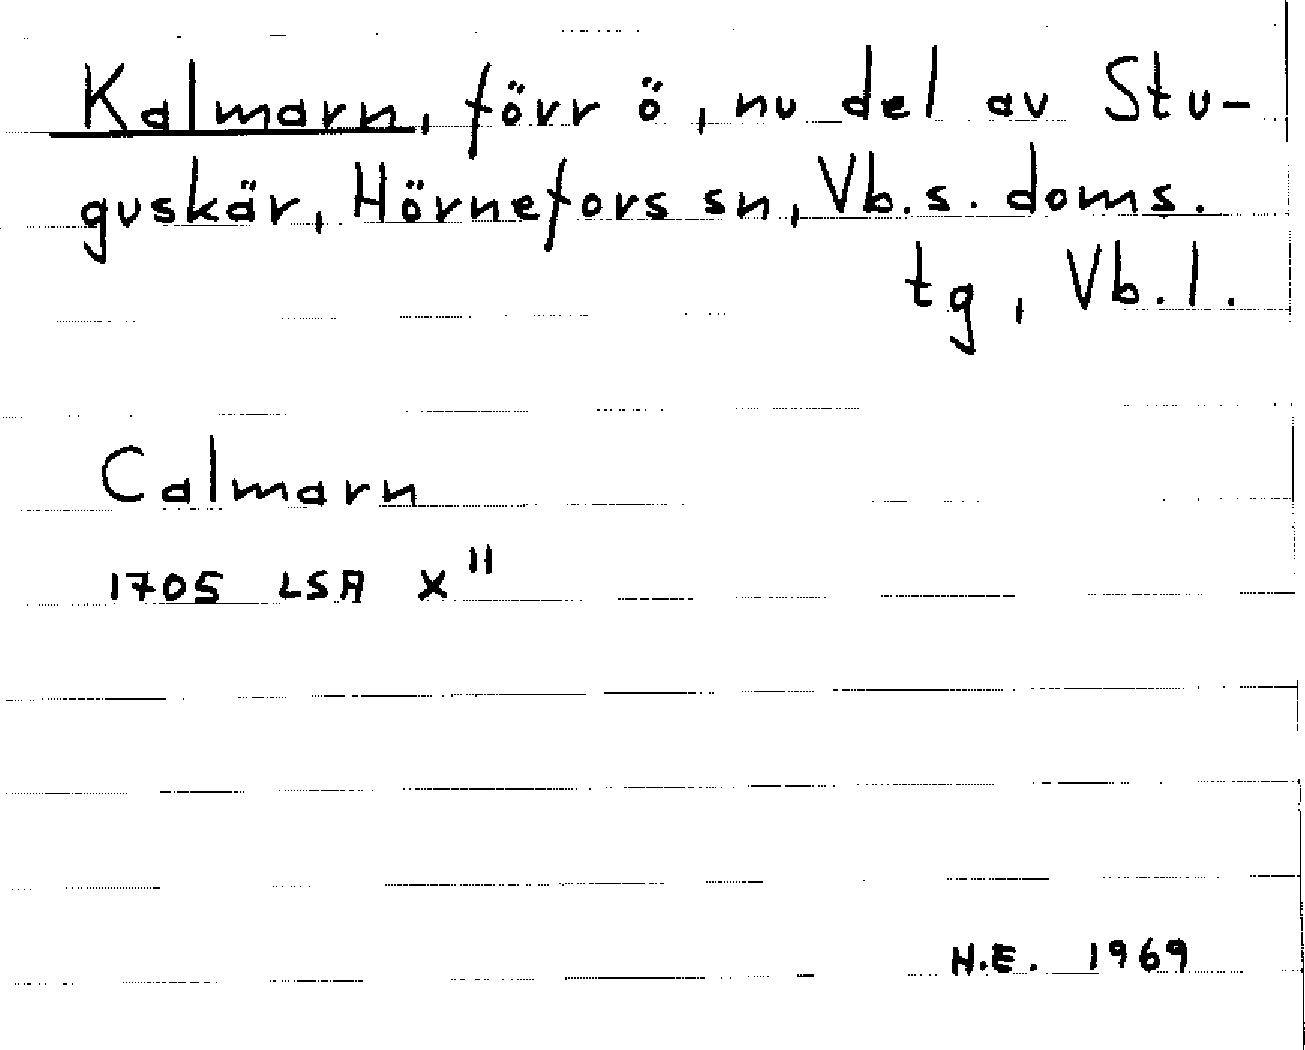 Kalmarn, förr ö, nu del av Stu-
guskär, Hörnefors sn, Vb.s. doms.
tg, Vb.l.
Calmarn
1705 LSA X"
H.E. 1969